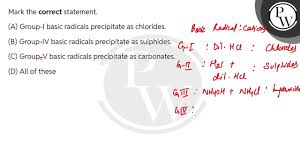 Mark the correct statement.
(A) Group-I basic radicals precipitate as chlorides.
(B) Group-IV basic radicals precipitate as sulphides.
(C) Group-V basic radicals precipitate as carbonates.
(D) All of these
Basic Radical: Cations
G-I : Dil. HCl : Chlorides
G-II : H2S + dil. HCl : Sulphides
G-III : NH4OH + NH4Cl :
G-IV :
PW